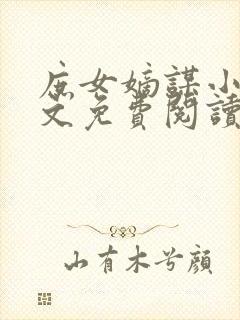 庶女嫡謀小
文免費閱讀
山有木兮顏